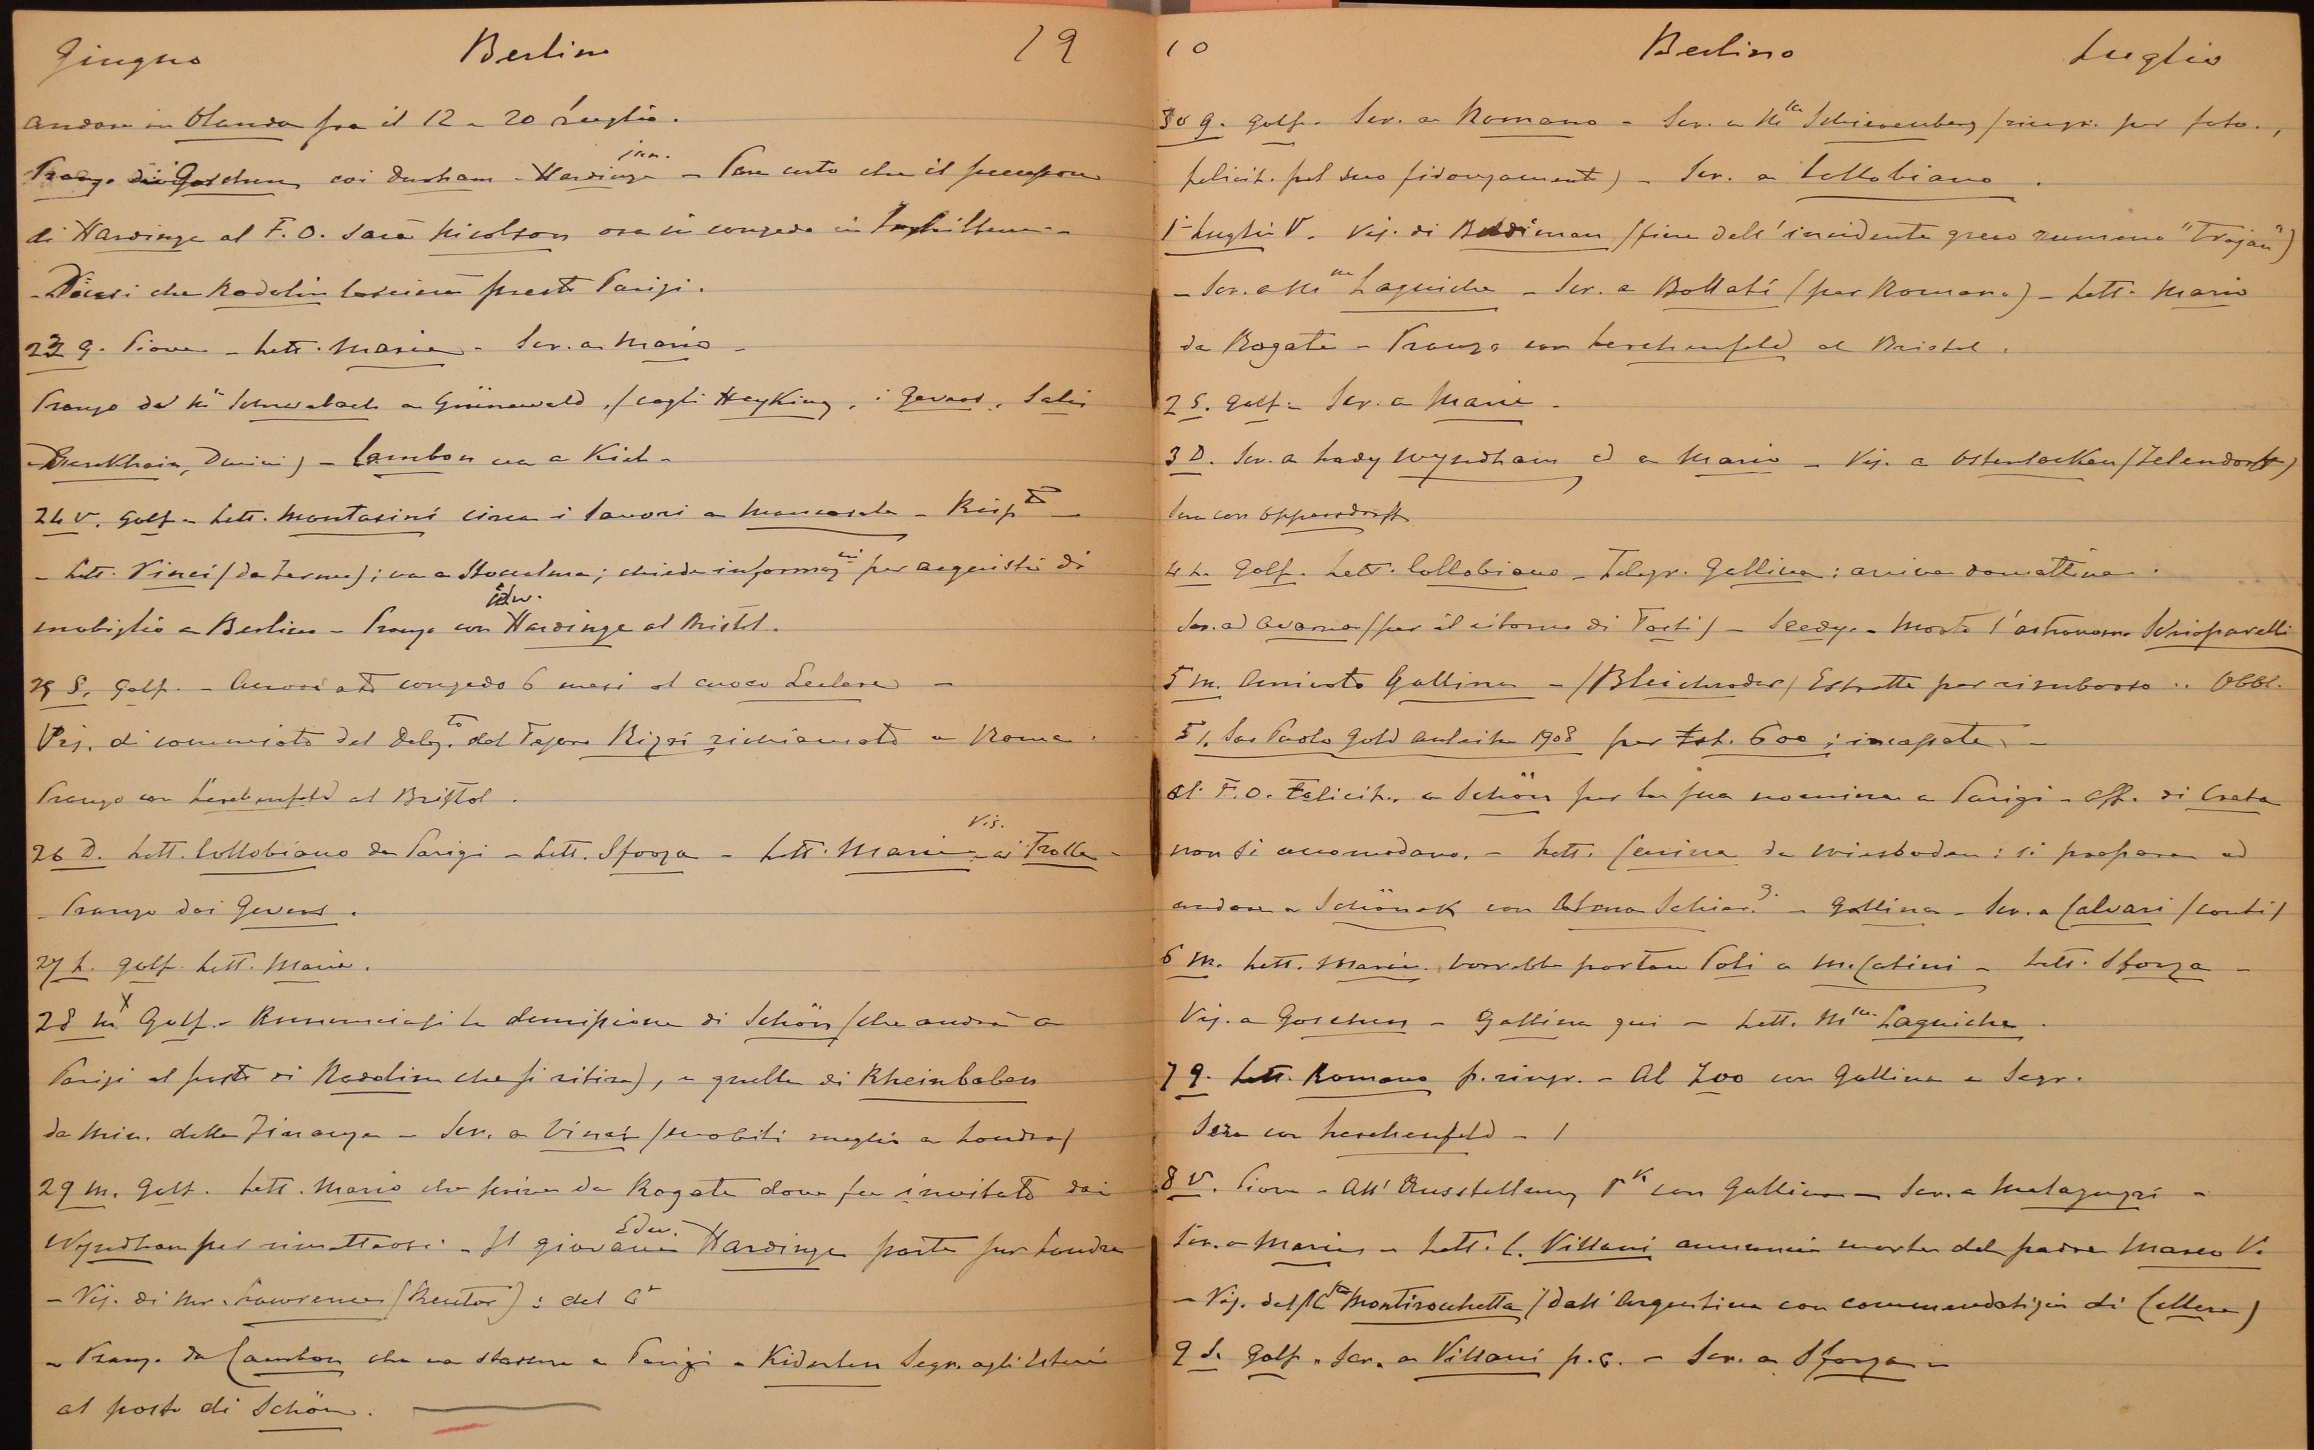 Giugno Berlino 19
andare in Olanda fra il 12 e 20 luglio.
Pranzo dai Goschen coi Durham - Hardinge jun. - Pare certo che il successore
di Hardinge al F.O. sarà Nicolson ora in congedo in Inghilterra -
- Dicesi che Radolin lascierà presto Parigi.
23 G. Piove - Lett. Maria - Scr. a Mario -
Pranzo da Schwabach a Grünewald (cogli Heyking, i Gevers, Salis
Durini) - Cambon va a Kiel -
24 V. Golf - Lett. Montasini circa i lavori a - Risp.to -
- Lett. Vinci (da Fermo); va a Stoccolma; chiede informaz.ni per acquisti di
mobiglio a Berlino - Pranzo con Edw. Hardinge al Bristol.
25 S. Golf. - Accordato congedo 6 mesi al cuoco Leclere -
Vis. di commiato del Deleg.to del Tesoro Rizzi richiamato a Roma.
Pranzo con Lerchenfeld al Bristol.
26 D. Lett. Collobiano da Parigi - Lett. Sforza - Lett. Maria - Vis. ai Trolle -
- Pranzo dai Gevers.
27 L. Golf. Lett. Maria.
28 M. X Golf. - Annunciasi la demissione di Schön (che andrà a
Parigi al posto di Radolin che si ritira), e quella di Rheinbaben
da Min. delle Finanze - Scr. a Vinci (mobili meglio a Londra)
29 M. Golf. Lett. Mario che scrive da Rogate dove fu invitato dai
Wyndham per rimettersi - Il giovane Edw. Hardinge parte per Londra
- Vis. di Mr. Lawrence (Reuter): del
- Pranzo da Cambon che va stasera a Parigi - Kiderlen Segr. agli Esteri
al posto di Schön.
10 Berlino Luglio
30 G. Golf. Scr. a Romano - Scr. a M.lle Schierenberg (ringr. per foto.,
felicit. pel suo fidanzamento) - Scr. a Collobiano.
1° Luglio V. Vis. di Beldiman (fine dell'incidente greco rumeno "Trajan")
- Scr. a M.me Laguiche - Scr. a Bollati (per Romano) - Lett. Mario
da Rogate - Pranzo con Lerchenfeld al Bristol.
2 S. Golf - Scr. a Maria -
3 D. Scr. a Lady Wyndham ed a Mario - Vis. a Ostensacken (Zelendorff)
Sera con Oppersdorff
4 L. Golf. Lett. Collobiano - Telegr. Gallina: arriva domattina.
Scr. ad Avarna (per il ritorno di Forti) - Seedys - Morto l'astronomo Schiaparelli
5 M. Arrivato Gallina - (Bleichroder) Estratte per rimborso .. Obbl.
5%. Sao Paolo Gold Anleihe 1908 per Lst. 600; incassate -
Al F.O. Felicit. a Schön per la sua nomina a Parigi - Aff. di Creta
non si accomodano. - Lett. Cerina da Wiesbaden: si prepara ad
andare a Schöneck con - Gallina - Scr. a Calvari (conti)
6 M. Lett. Maria. Vorrebbe portare Poli a M.Catini - Lett. Sforza -
Vis. a Goschen - Gallina qui - Lett. M.me Laguiche.
7 G. Lett. Romano p. ringr. - Al Zoo con Gallina e Segr.
Sera con Lerchenfeld -
8 V. Piove - All'Ausstellung con Gallina - Scr. a Malaguzzi -
Scr. a Maria - Lett. C. Villani annuncia morte del padre Marco V.
- Vis. del Montirochetta (dall'Argentina con commendatizia di Cellere)
9 S. Golf. Scr. a Villani p.c. - Scr. a Sforza -